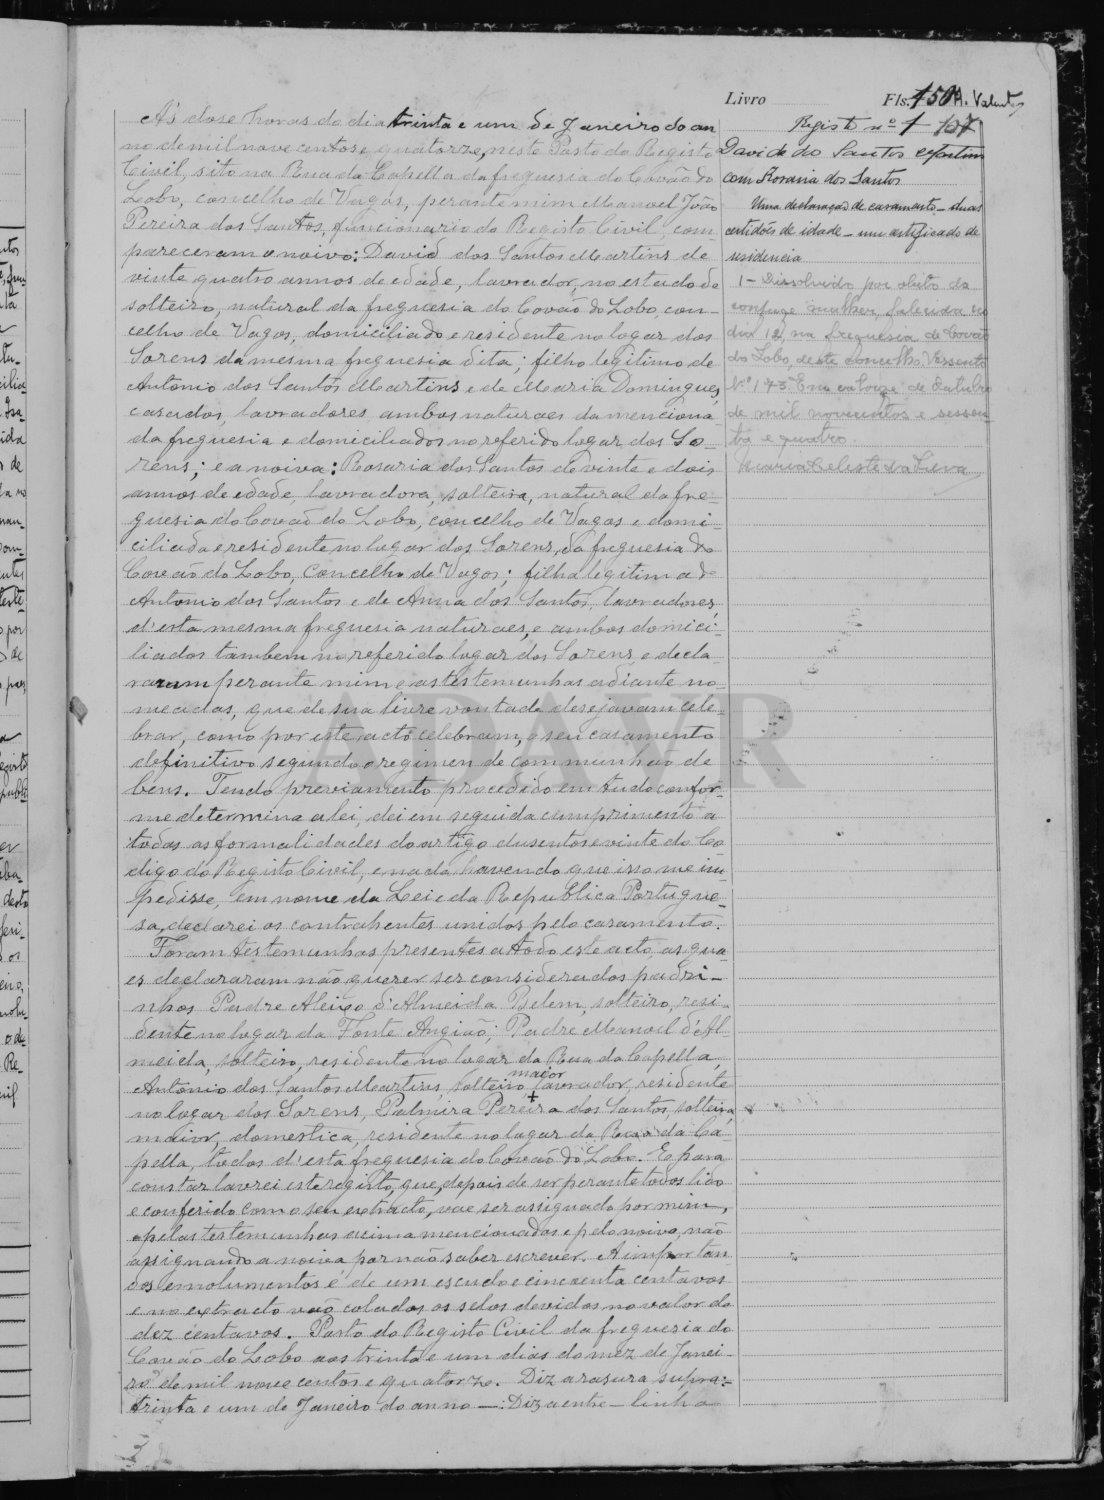 Livro Fls. 150 A. Valente
Registo nº 1
David do Santos Martins
com Rosaria dos Santos
Uma declaração de casamento - duas
certidões de idade - um atestado de
residencia
1 - Dissolvido por obito da
conjuge mulher, falecida no
dia 12, na freguesia de Covão
do Lobo, deste concelho. Assento
N.º 143 Em catorze de Outubro
de mil novecentos e sessen-
ta e quatro.
Maria Celeste da Silva
Ás dose horas do dia trinta e um de Janeiro do an
no de mil nove centos e quatorze, neste Posto do Registo
Civil, sito na Rua da Capella da freguesia do Covão do
Lobo, concelho de Vagos, perante mim Manoel João
Pereira dos Santos, funcionario do Registo Civil, com-
pareceram o noivo: David dos Santos Martins de
vinte quatro annos de edade, lavrador, no estado de
solteiro, natural da freguesia do Covão do Lobo, con-
celho de Vagos, domiciliado e residente no logar dos
Sorens da mesma freguesia dita; filho legitimo de
Antonio dos Santos Martins e de Maria Domingues,
casados, lavradores, ambos naturaes da menciona
da freguesia e domiciliados no referido logar dos So-
rens; e a noiva: Rosaria dos Santos de vinte e dois
annos de edade, lavradora, solteira, natural da fre-
guesia do Covaõ do Lobo, concelho de Vagos e domi-
ciliada e residente no lugar dos Sorens, da freguesia do
Covão do Lobo, Concelho de Vagos; filha legitima de
Antonio dos Santos e de Anna dos Santos, lavradores,
d'esta mesma freguesia naturaes, e ambos domici-
liados tambem no referido logar dos Sorens, e decla-
raram perante mim e as testemunhas adiante no-
meadas, que de sua livre vontade desejavam cele-
brar, como por este acto celebram, o seu casamento
definitivo segundo o regimen de communhão de
bens. Tendo previamente procedido em tudo confor-
me determina a lei, dei em seguida cumprimento a
todas as formalidades do artigo dusentos e vinte do Co-
digo do Registo Civil, e nada havendo que isso me im-
pedisse, em nome da Lei e da Republica Portugue-
sa, declarei os contrahentes unidos pelo casamento.
Foram testemunhas presentes a todo este acto, as qua-
es declararam não querer ser considerados padri-
nhos Padre Aleixo d'Almeida Belem, solteiro, resi-
dente no logar da Fonte Angião; Padre Manoel d'Al-
meida, solteiro, residente no logar da Rua da Capella
maior
Antonio dos Santos Martins, solteiro, lavrador, residente
no logar dos Sorens, Palmira Pereira dos Santos, solteira,
maior, domestica, residente no lugar da Rua da Ca-
pella, todos d'esta freguesia do Covaõ do Lobo. E para
constar lavrei este registo, que, depois de ser perante todos lido
e conferido com o seu extracto, vae ser assignado por mim,
e pelas testemunhas acima mencionadas e pelo noivo, não
assignando a noiva por não saber escrever. A importan
dos emolumentos é de um escudo e cincoenta centavos
e no extracto vaõ colados os selos devidos no valor de
dez centavos. Posto do Registo Civil da freguesia do
Covão do Lobo aos trinta e um dias do mez de Janei-
ro de mil nove centos e quatorze. Diz a rasura supra:
trinta e um de Janeiro do anno —: Diz a entre-linha
ADAVR